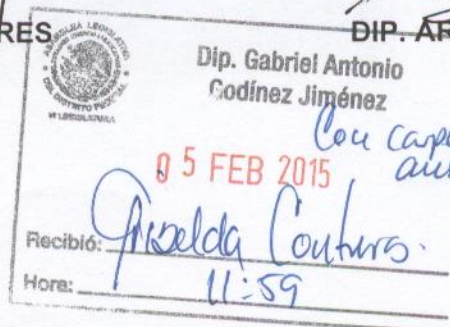 RES
DIP. AR
ASAMBLEA LEGISLATIVA
DEL DISTRITO FEDERAL
VI LEGISLATURA
Dip. Gabriel Antonio
Godínez Jiménez
Con
05 FEB 2015
Recibió: Griselda Contreras.
Hora: 11:59